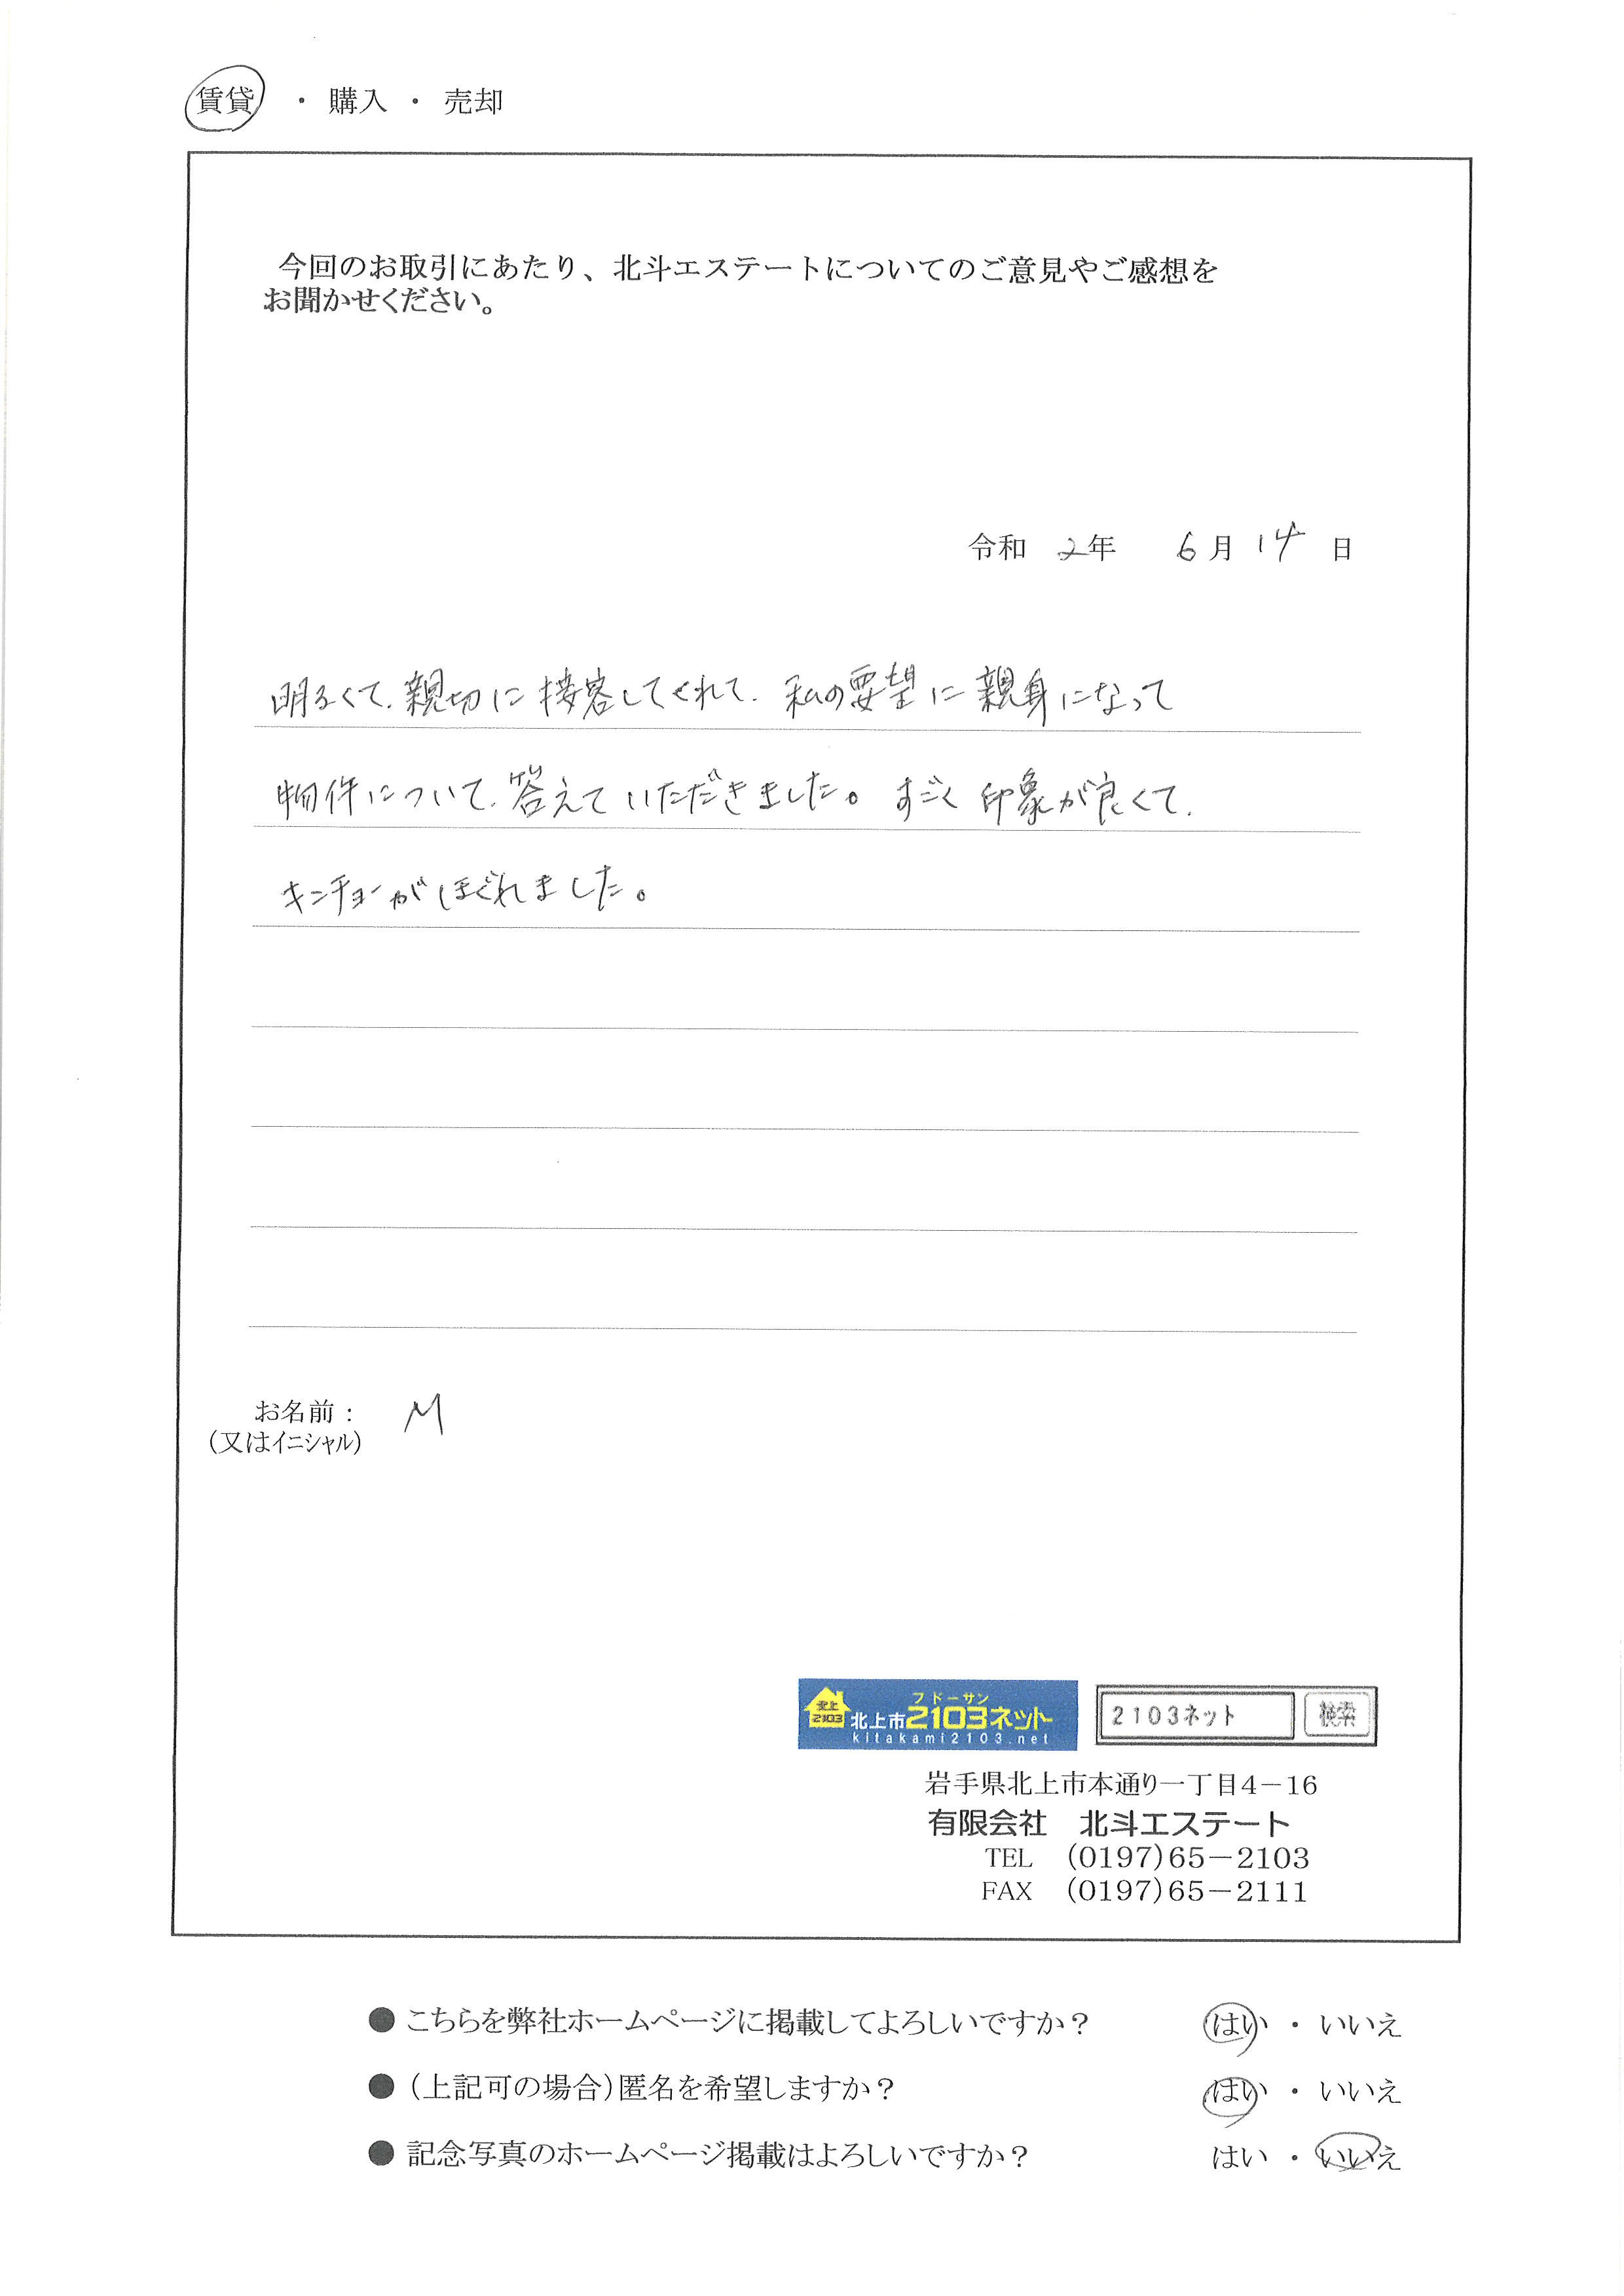 賃貸 ・ 購入 ・ 売却
今回のお取引にあたり、北斗エステートについてのご意見やご感想を
お聞かせください。
令和 2年 6月 14 日
明るくて、親切に接客してくれて、私の要望に親身になって
物件について、答えていただきました。すごく印象が良くて、
キンチョーがほぐれました。
お名前: M
(又はイニシャル)
北上
2103
フドーサン
北上市2103ネット
kitakami2103.net
2103ネット 検索
岩手県北上市本通り一丁目4-16
有限会社 北斗エステート
TEL (0197)65-2103
FAX (0197)65-2111
● こちらを弊社ホームページに掲載してよろしいですか? はい ・ いいえ
● (上記可の場合)匿名を希望しますか? はい ・ いいえ
● 記念写真のホームページ掲載はよろしいですか? はい ・ いいえ